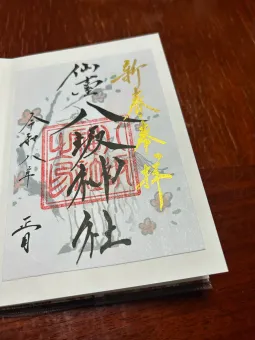 新春奉拝
仙臺八坂神社
令和八年
正月